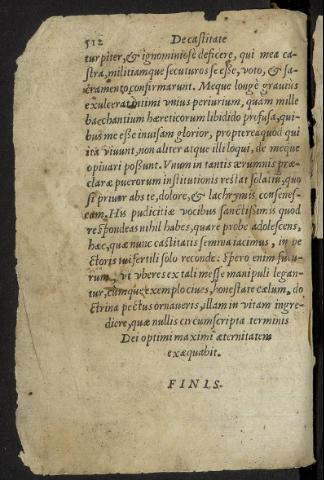 512 De castitate
turpiter, & ignominiosè deficere, qui mea ca-
stra, militiamque secuturos se esse, voto, & sa-
cramento confirmarunt. Meque longè grauius
exulcerat intimi vnius periurium, quàm mille
bacchantium hæreticorum libidido profusa, qui-
bus me esse inuisam glorior, propterea quòd qui
ita viuunt, non aliter atque illi loqui, de meque
opinari possunt. Vnum in tantis ærumnis præ-
claræ puerorum institutionis restat solatiũ, quo
si priuer abs te, dolore, & lachrymis consenes-
cam. His pudicitiæ vocibus sanctissimis quod
respondeas nihil habes, quare probe adolescens,
hæc, quæ nunc castitatis semina iacimus, in pe
ctoris tui fertili solo reconde: spero enim futu-
rum, vt vberes ex tali messe manipuli legan-
tur, cumque exemplo ciues, honestate cælum, do
ctrina pectus ornaueris, illam in vitam ingre-
diere, quæ nullis circumscripta terminis
Dei optimi maximi æternitatem
exæquabit.
FINIS.